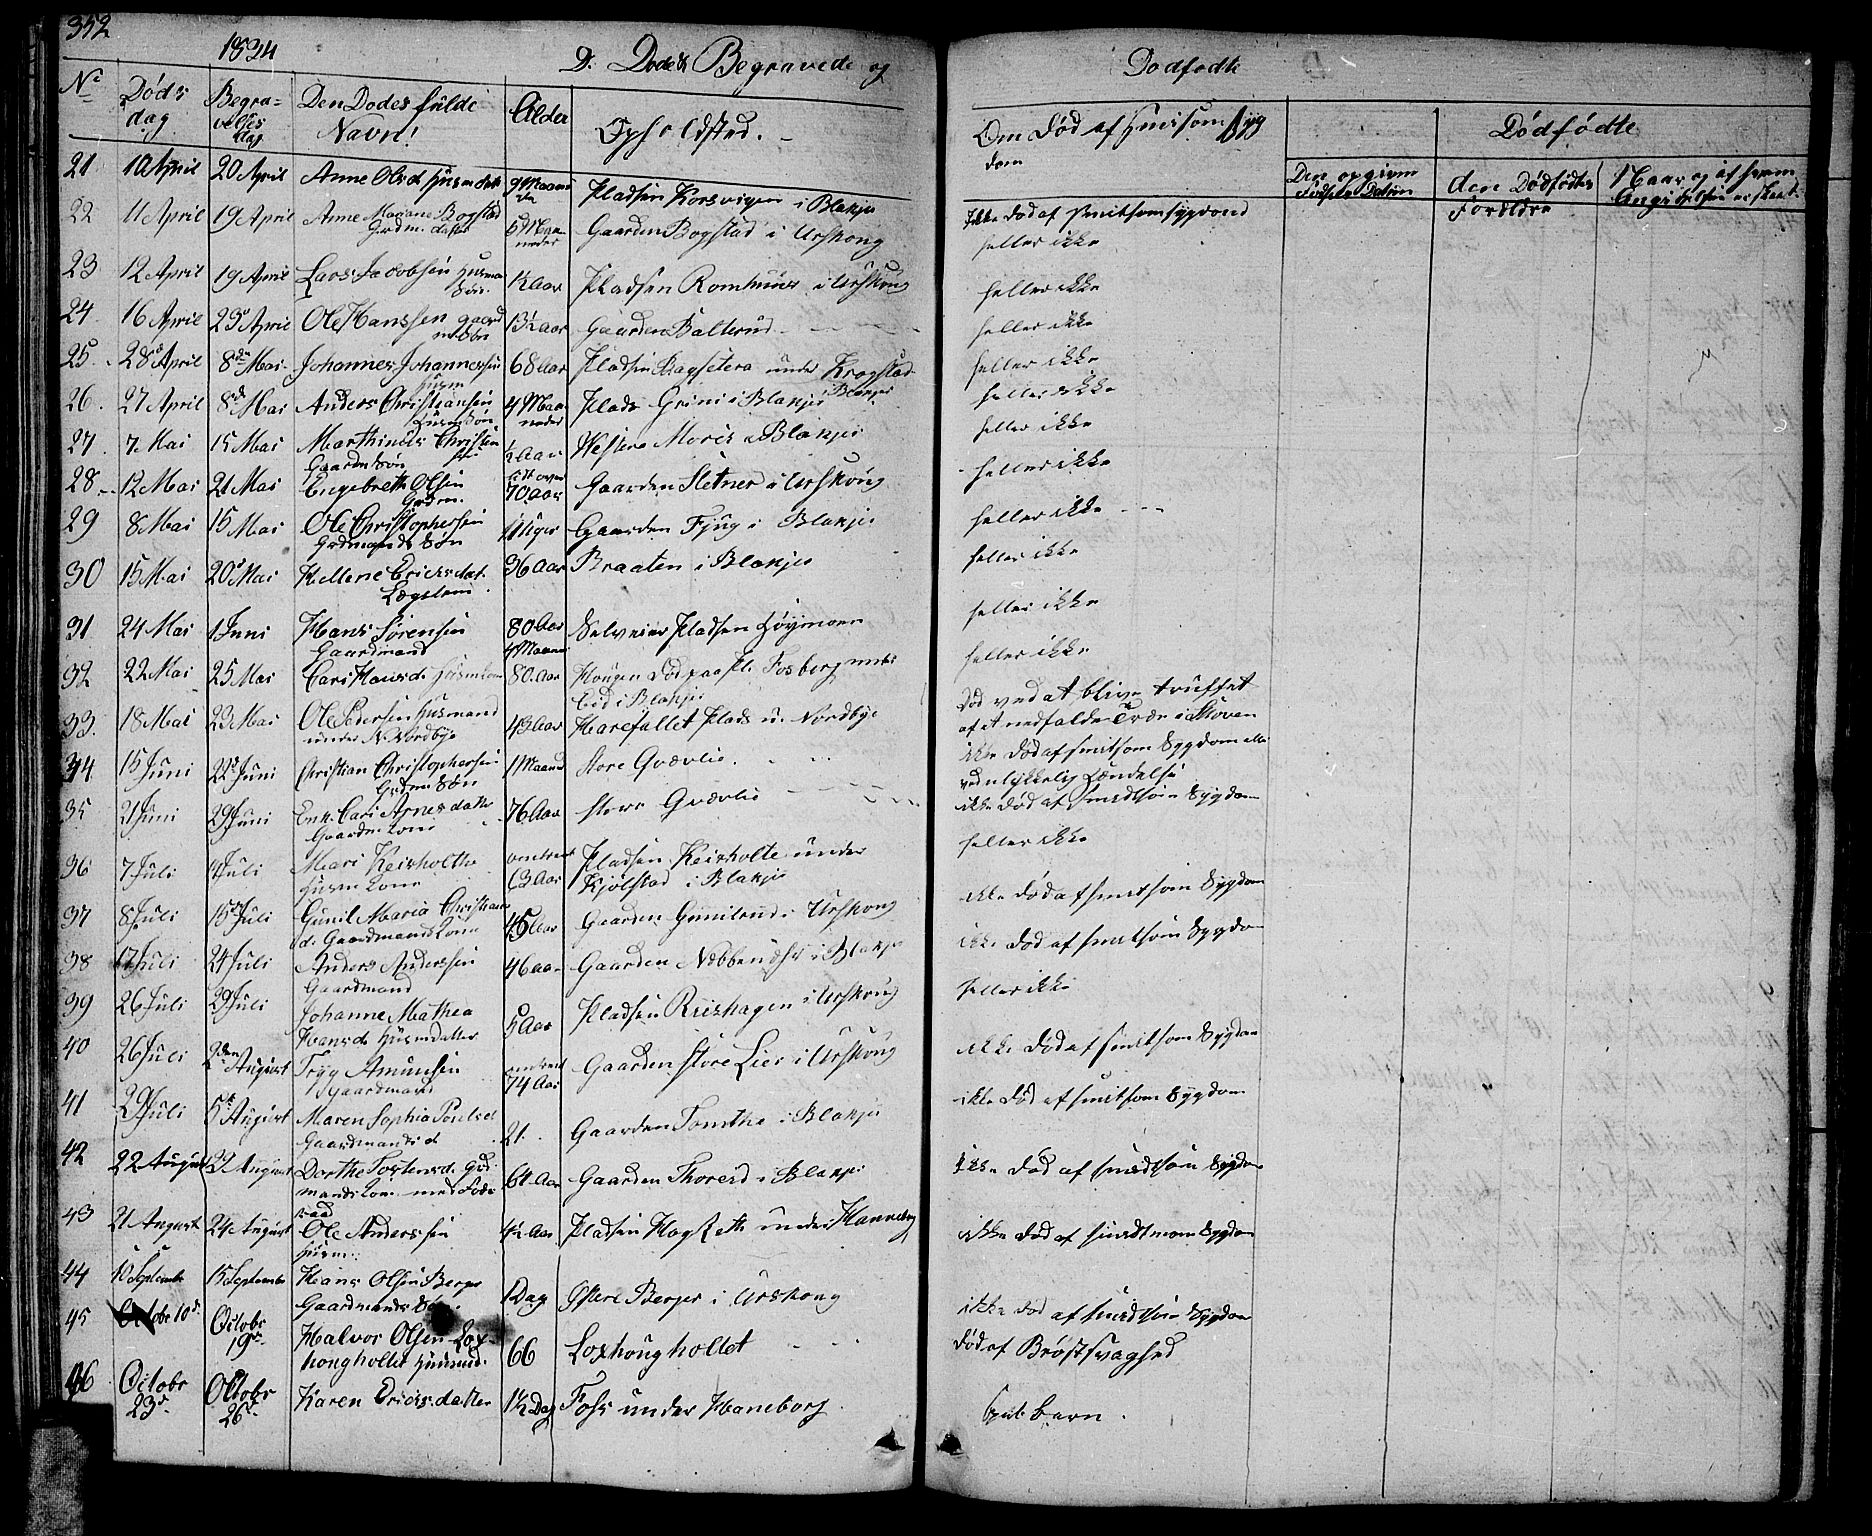 352
1834
D. Døde & Begravede og Dødfødte
No Døds dag Begravelses dag Den Dødes fulde Navn! Alder Opholdsted. Om død af smitsom Syg dom Dødfødte
Den opgivne den Dødfødtes Forældre Naar og af hvem
21 10 April 20 April Anne Olsd Husm datt 9 Maaned Pladsen Korsvigen i Blakjer Ikke død af smitsom sygdom
22 11 April 19 April Anne Mariane Bogstad Grdm. datter 5 Maaneder Gaarden Bogstad i Urskoug heller ikke
23 12 April 19 April Lars Jacobsen Husman Søn. ½ Aar Pladsen Romhuus i Urskoug heller ikke
24 16 April 23 April Ole Hanssen gaard m Søn 13½ Aar Gaarden Balterud heller ikke
25 28 April 8de Mai Johannes Johannessen Husm 68 Aar Pladsen Bagsetera under Krogstad Blakjer heller ikke
26. 27 April 8de Mai Anders Christiansen Husm Søn 4 Maaneder Plads Grini i Blakjer heller ikke
27. 7 Mai 15 Mai Marthinus Christensen Gaardm Søn ½ Aar Westere Moris i Blakjer heller ikke
28 12 Mai 21 Mai Engebreth Olsen Grdm. 70 Aar Gaarden Sletner i Urskoug heller ikke
29 8 Mai 15 Mai Ole Christophersen Grdmands Søn 11 Uger Gaarden Fjug i Blakjer heller ikke
30 15 Mai 20 Mai Hellene Ericksdat. Lægslem 36 Aar Braaten i Blakjer heller ikke
31 24 Mai 1 Juni Hans Sørensen Gaardmand 80 Aar 4 Maaned Selveier Pladsen Høymoen heller ikke
32 22 Mai 25 Mai Cari Hansd. Husm kone 80 Aar Hougen død paa Pl. Fosberg under Eid i Blakjer heller ikke
33. 18 Mai 23 Mai Ole Pedersen Husmand under N. Nordbye 43 Aar Harefallet Plads u. Nordbye Død ved at blive truffet af et nedfaldet Træ i Skoven
34 15 Juni 22 Juni Christian Christophersen Grdm Søn 1 Maaned Store Gvævlie. ikke død af smitsom Sygdom eller ved ulykkelig Hændelse
35 21 Juni 29 Juni Enk. Cari Arnesdatter Gaardm. kone 76 Aar Store Gvævlie ikke død af smitsom Sygdom
36 7 Juli Juli Mari Keisholthe Husm kone omtrent 63 Aar Pladsen Keisholte under Kjølstad i Blakjer heller ikke
37 8 Juli 15 Juli Gunil Maria Christians d. Gaardmands kone 45 Aar Gaarden Gunilrud i Urskoug ikke død af smitsom Sygdom
38 17 Juli 24 Juli Anders Anderssen Gaardmand 46 Aar Gaarden i Blakjer ikke død af smitsom Sygdom
39 26 Juli 29 Juli Johanne Mathea Hansd. Husm datter 5 Aar Pladsen Riishagen i Urskoug heller ikke
40 26 Juli 2den August Tryg Amunsen Gaardmand omtrent 74 Aar Gaarden store Lier i Urskoug ikke død af smitsom Sygdom
41 29 Juli 5te August Maren Sophia Poulsd Gaardmands d 21. Gaarden Tomthe i Blakjer ikke død af smitsom Sygdom
42 22 August August Dorthe Tostensd. Grdmands kone med Føderaad 64 Aar Gaarden Thorerd i Blakjer ikke død af smitsom Sygdom
43 21 August 24 August Ole Anderssen Husm. 42 Aar Pladsen under Hanneborg ikke død af smitsom Sygdom
44 10 September 15 September Hans Olsen Berger Gaardmands Søn 1 Dag Østre Berger i Urskoug ikke død af smitsom Sygdom
45 October 10d. October 19d Halvor Olsen Loxhoughollet Husmd. 66 Loxhoughollet død af Brøstsvaghed
46 October 23d. October 26d. Karen Ericksdatter 1½ Dag Foss under Haneborg spæd barn.